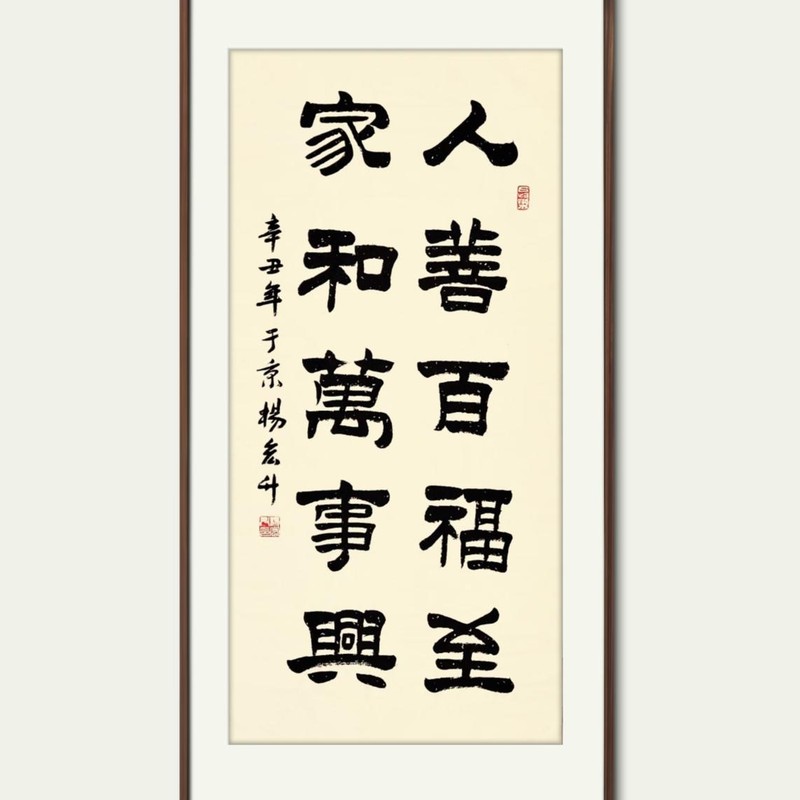 人善百福至
家和萬事興
辛丑年于京楊宏升